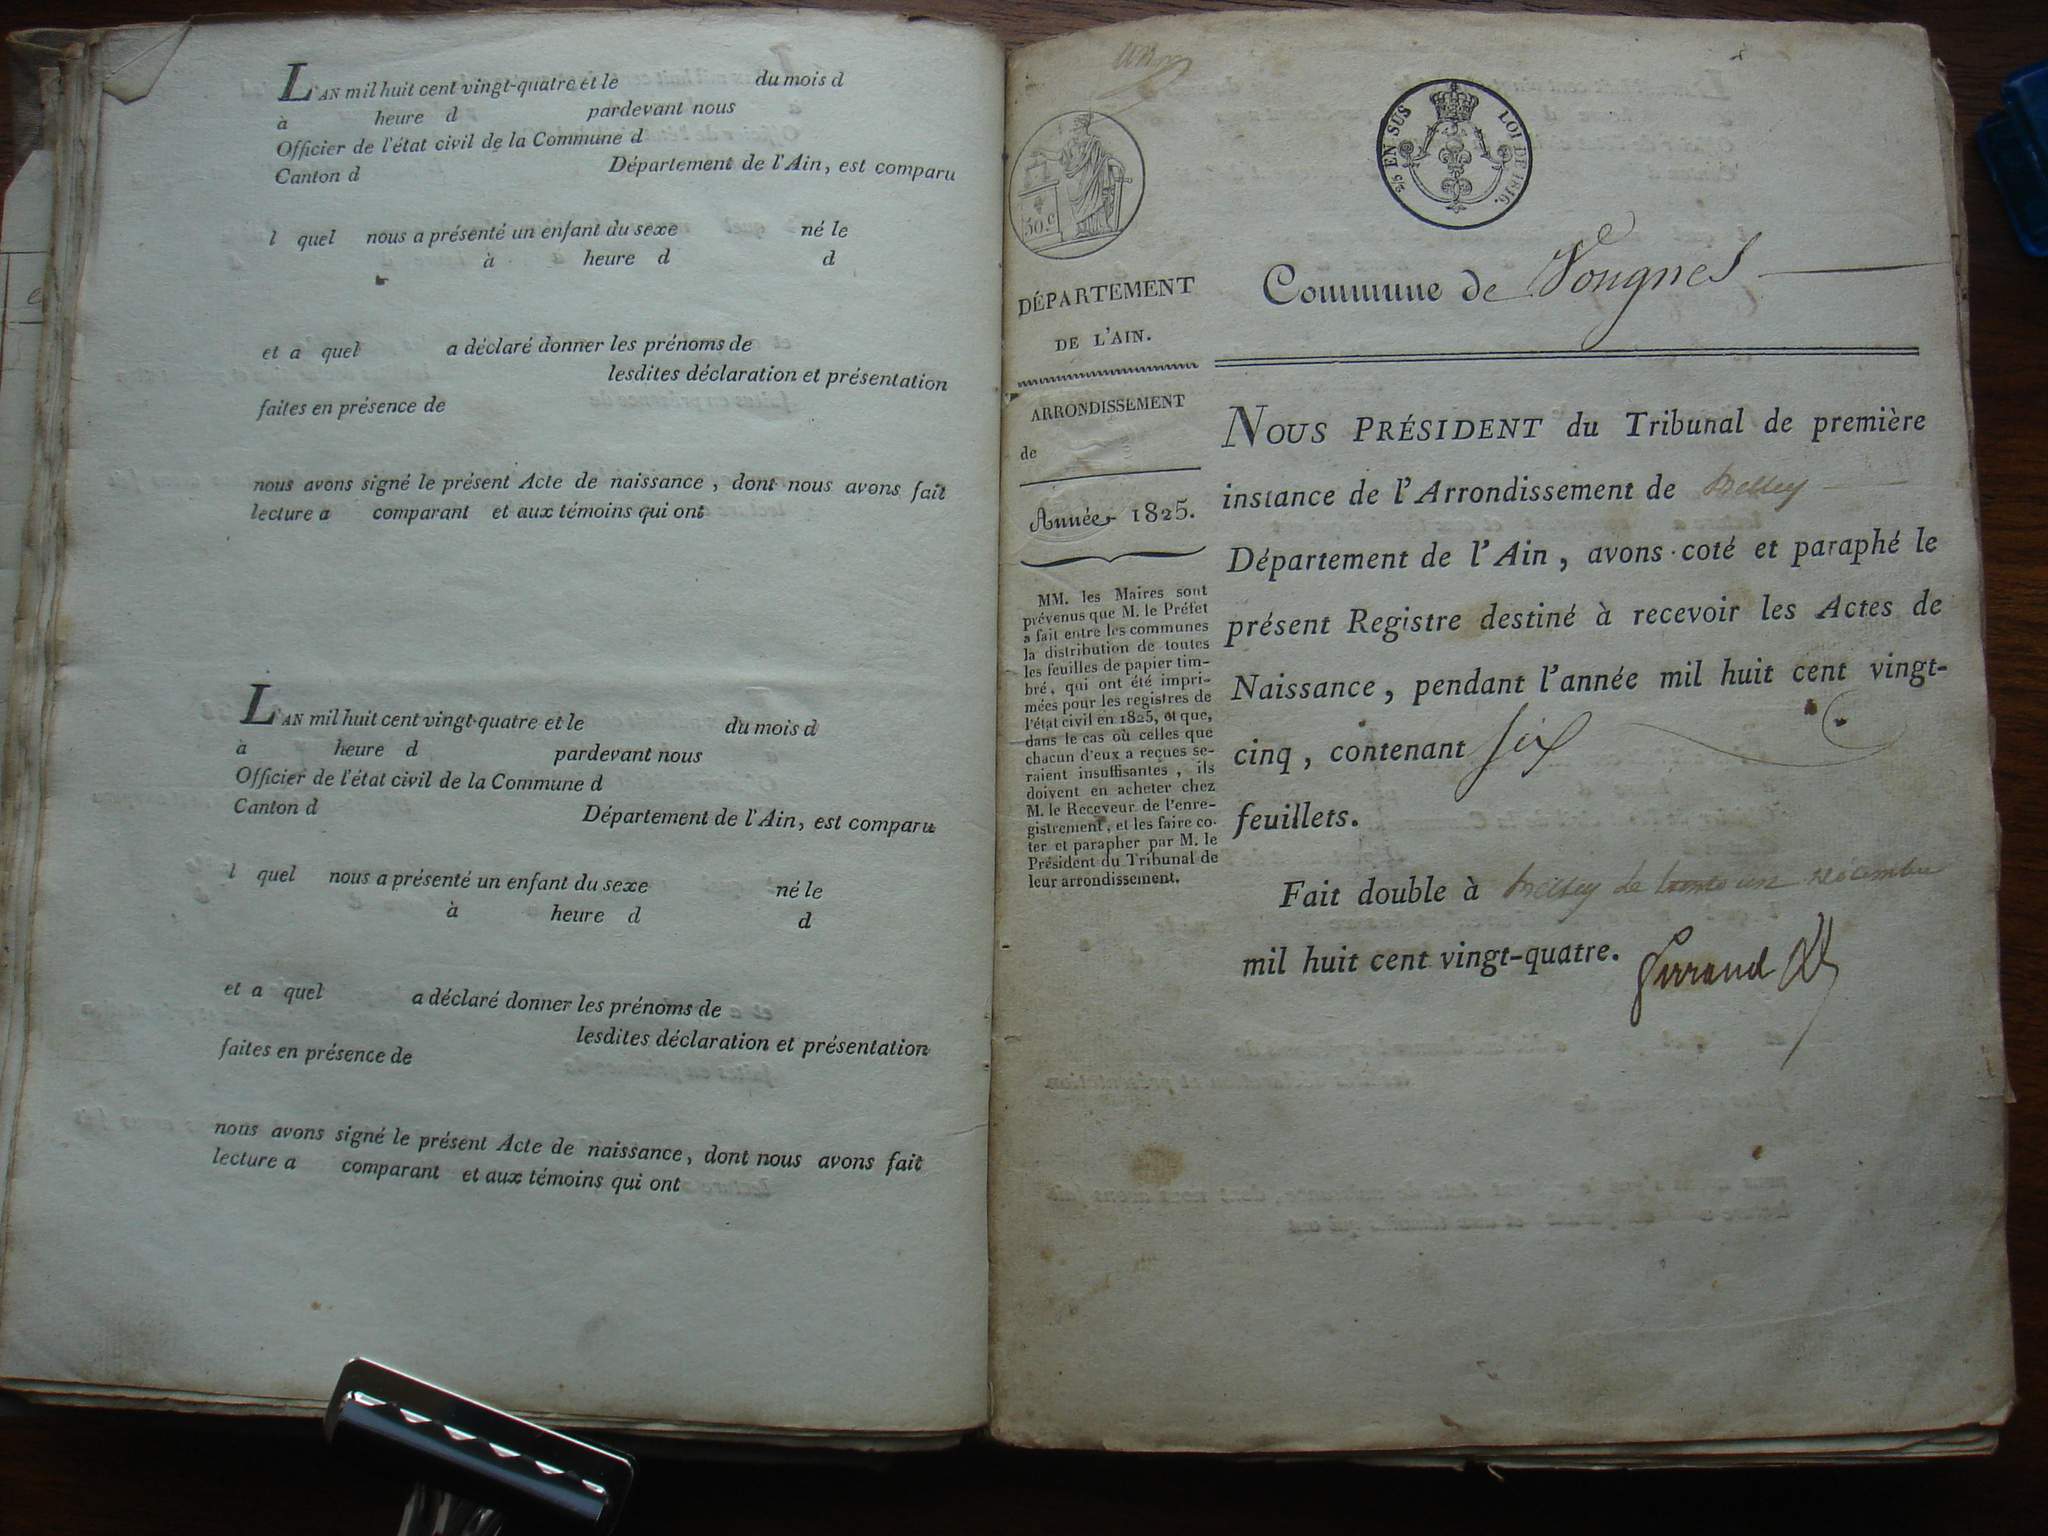 L'AN mil huit cent vingt-quatre et le du mois d
à heure d pardevant nous
Officier de l'état civil de la Commune d
Canton d Département de l'Ain, est comparu
l quel nous a présenté un enfant du sexe né le
à heure d d
et a quel a déclaré donner les prénoms de
lesdites déclaration et présentation
faites en présence de
nous avons signé le présent Acte de naissance, dont nous avons fait
lecture a comparant et aux témoins qui ont
L'AN mil huit cent vingt-quatre et le du mois d
à heure d pardevant nous
Officier de l'état civil de la Commune d
Canton d Département de l'Ain, est comparu
l quel nous a présenté un enfant du sexe né le
à heure d d
et a quel a déclaré donner les prénoms de
lesdites déclaration et présentation
faites en présence de
nous avons signé le présent Acte de naissance, dont nous avons fait
lecture a comparant et aux témoins qui ont
50 c
EN SUS LOI DE 1816.
DÉPARTEMENT
DE L'AIN.
ARRONDISSEMENT
de
Année 1825.
MM. les Maires sont
prévenus que M. le Préfet
a fait entre les communes
la distribution de toutes
les feuilles de papier tim-
bré, qui ont été impri-
mées pour les registres de
l'état civil en 1825, et que,
dans le cas où celles que
chacun d'eux a reçues se-
raient insuffisantes, ils
doivent en acheter chez
M. le Receveur de l'enre-
gistrement, et les faire co-
ter et parapher par M. le
Président du Tribunal de
leur arrondissement.
Commune de Vongnes
NOUS PRÉSIDENT du Tribunal de première
instance de l'Arrondissement de Belley
Département de l'Ain, avons coté et paraphé le
présent Registre destiné à recevoir les Actes de
Naissance, pendant l'année mil huit cent vingt-
cinq, contenant six
feuillets.
Fait double à Belley le trente un décembre
mil huit cent vingt-quatre.